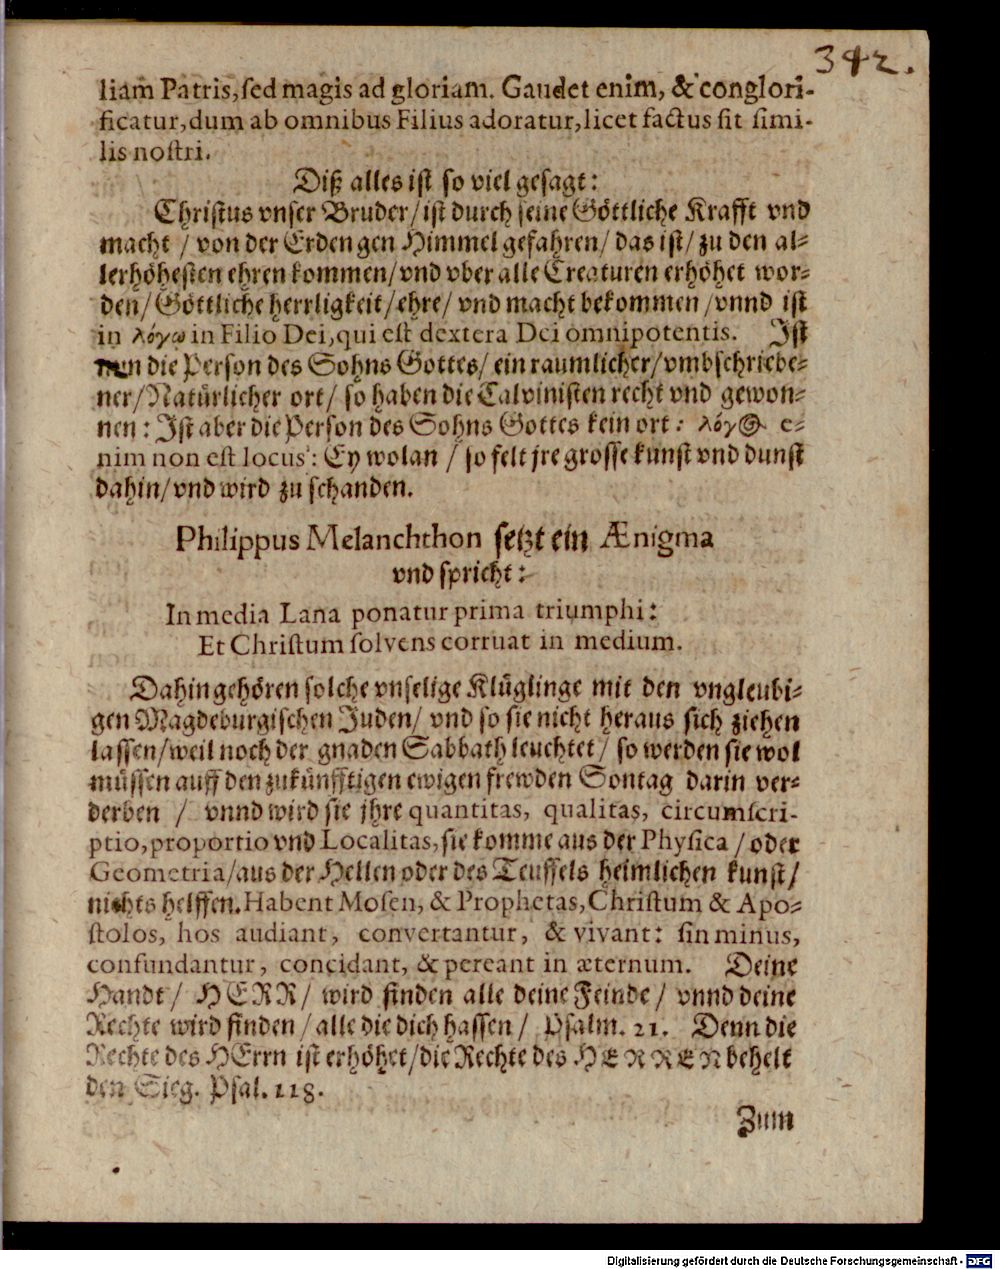 342.
liam Patris, sed magis ad gloriam. Gaudet enim, & conglori-
ficatur, dum ab omnibus Filius adoratur, licet factus sit simi-
lis nostri.
Diß alles ist so viel gesagt:
Christus vnser Bruder/ ist durch seine Göttliche Krafft vnd
macht / von der Erden gen Himmel gefahren/ das ist/ zu den al-
lerhöhesten ehren kommen/ vnd vber alle Creaturen erhöhet wor-
den/ Göttliche herrligkeit/ ehre/ vnd macht bekommen / vnnd ist
in λόγω in Filio Dei, qui est dextera Dei omnipotentis. Ist
nun die Person des Sohns Gottes/ ein raumlicher/ vmbschriebe-
ner/ Natürlicher ort/ so haben die Calvinisten recht vnd gewon-
nen: Ist aber die Person des Sohns Gottes kein ort: λόγος e-
nim non est locus: Ey wolan / so felt jre grosse kunst vnd dunst
dahin/ vnd wird zu schanden.
Philippus Melanchthon setzt ein Ænigma
vnd spricht:
In media Lana ponatur prima triumphi:
Et Christum solvens corruat in medium.
Dahin gehören solche vnselige Klüglinge mit den vngleubi-
gen Magdeburgischen Juden/ vnd so sie nicht heraus sich ziehen
lassen/ weil noch der gnaden Sabbath leuchtet/ so werden sie wol
müssen auff den zukünfftigen ewigen frewden Sontag darin ver-
derben / vnnd wird sie jhre quantitas, qualitas, circumscri-
ptio, proportio vnd Localitas, sie komme aus der Physica / oder
Geometria/ aus der Hellen oder des Teuffels heimlichen kunst/
nichts helffen. Habent Mosen, & Prophetas, Christum & Apo-
stolos, hos audiant, convertantur, & vivant: sin minus,
confundantur, concidant, & pereant in æternum. Deine
Handt/ HERR/ wird finden alle deine Feinde/ vnnd deine
Rechte wird finden / alle die dich hassen/ Psalm. 21. Denn die
Rechte des HErrn ist erhöhet/ die Rechte des HERREN behelt
den Sieg. Psal. 118.
Zum
Digitalisierung gefördert durch die Deutsche Forschungsgemeinschaft - DFG